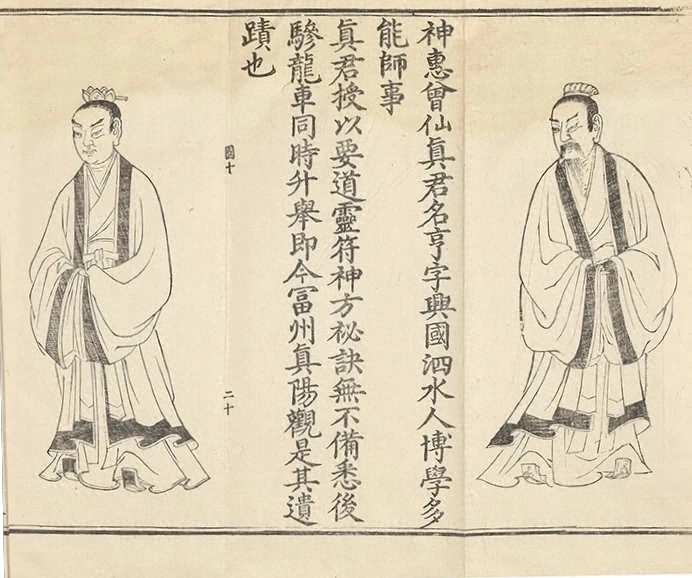 神惠曾仙眞君名亨字興國泗水人博學多
能師事
眞君授以要道靈符神方祕訣無不備悉後
驂龍車同時升舉即今冨州眞陽觀是其遺
蹟也
圖十
二十